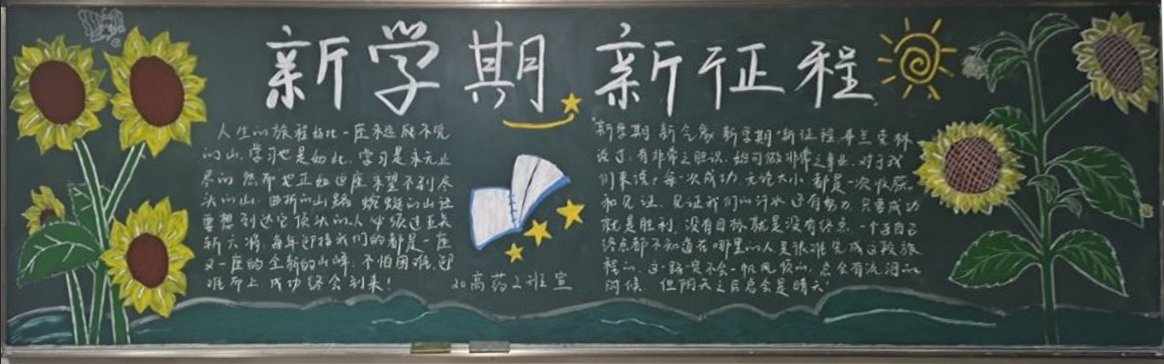 新学期 新征程
人生的旅程好比一座永远爬不完
的山,学习也是如此,学习是永无止
尽的 然而也正如这座望不到尽
头的山,曲折的山路 蜿蜒的山
要想到达它顶头的人 必须过五关
斩六将,每年迎接我们的都是一座
又一座的全新的山峰,不怕困难,迎
难而上 成功终会到来!
20高药2班 宣
"新学期 新气象 新学期 新征程 弗兰克林
说过:有非常之胆识,始可做非常之事业,对于我
们来说,每一次成功 无论大小 都是一次收获
和见证,见证我们的汗水 还有努力,只要成功
就是胜利,没有目标就是没有终点 一个连自己
终点都不知道在哪里的人是很难完成这段旅
程的,这一路定不会一帆风顺的,总会有流泪的
时候,但阴天之后总会是晴天"